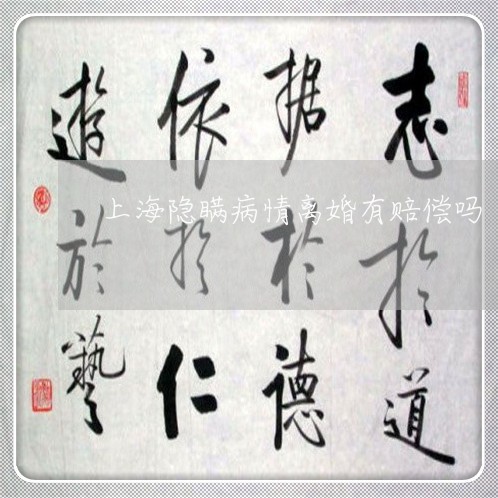 志於道
据於德
依於仁
遊於藝
上海隐瞒病情离婚有赔偿吗